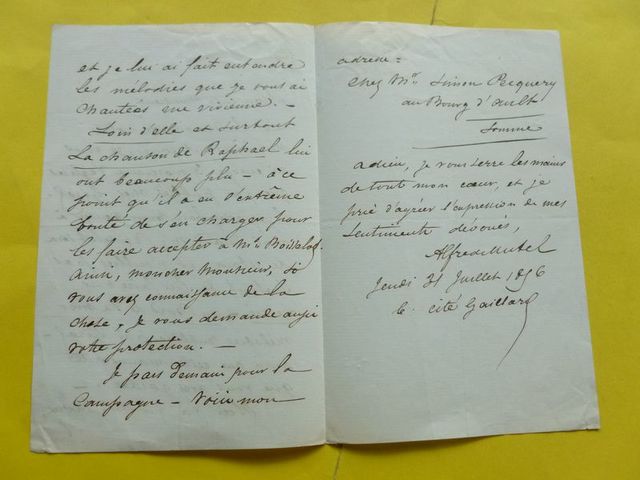 et je lui ai fait entendre
les mélodies que je vous ai
chantées rue vivienne. —
Loin d'elle et surtout
La chanson de Raphael lui
ont beaucoup plu — à ce
point qu'il a eu d'extrême
bonté de s'en charger pour
les faire accepter à Mr.
Ainsi, mon cher Monsieur, si
vous avez connaissance de la
chose, je vous demande aussi
votre protection. —
Je pars Demain pour la
Campagne — Voici mon
adresse =
Chez Mr. Simon Pecquery
au Bourg d'Ault
Somme
adieu, je vous serre les mains
de tout mon cœur, et je
prie d'agréer l'expression de mes
sentiments dévoués,
Alfred Mutel
Jeudi 31 Juillet 1856
6. cité Gaillard